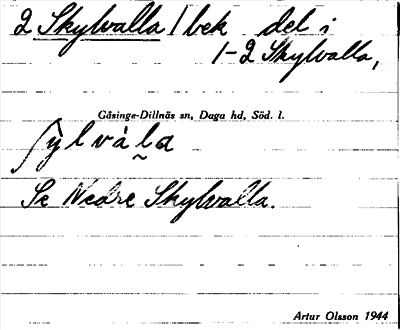 2 Skylvalla 1 bek del i
1-2 Skylvalla,
Gåsinge-Dillnäs sn, Daga hd, Söd. l.
ʃỳlvàla
Se Nedre Skylvalla.
Artur Olsson 1944